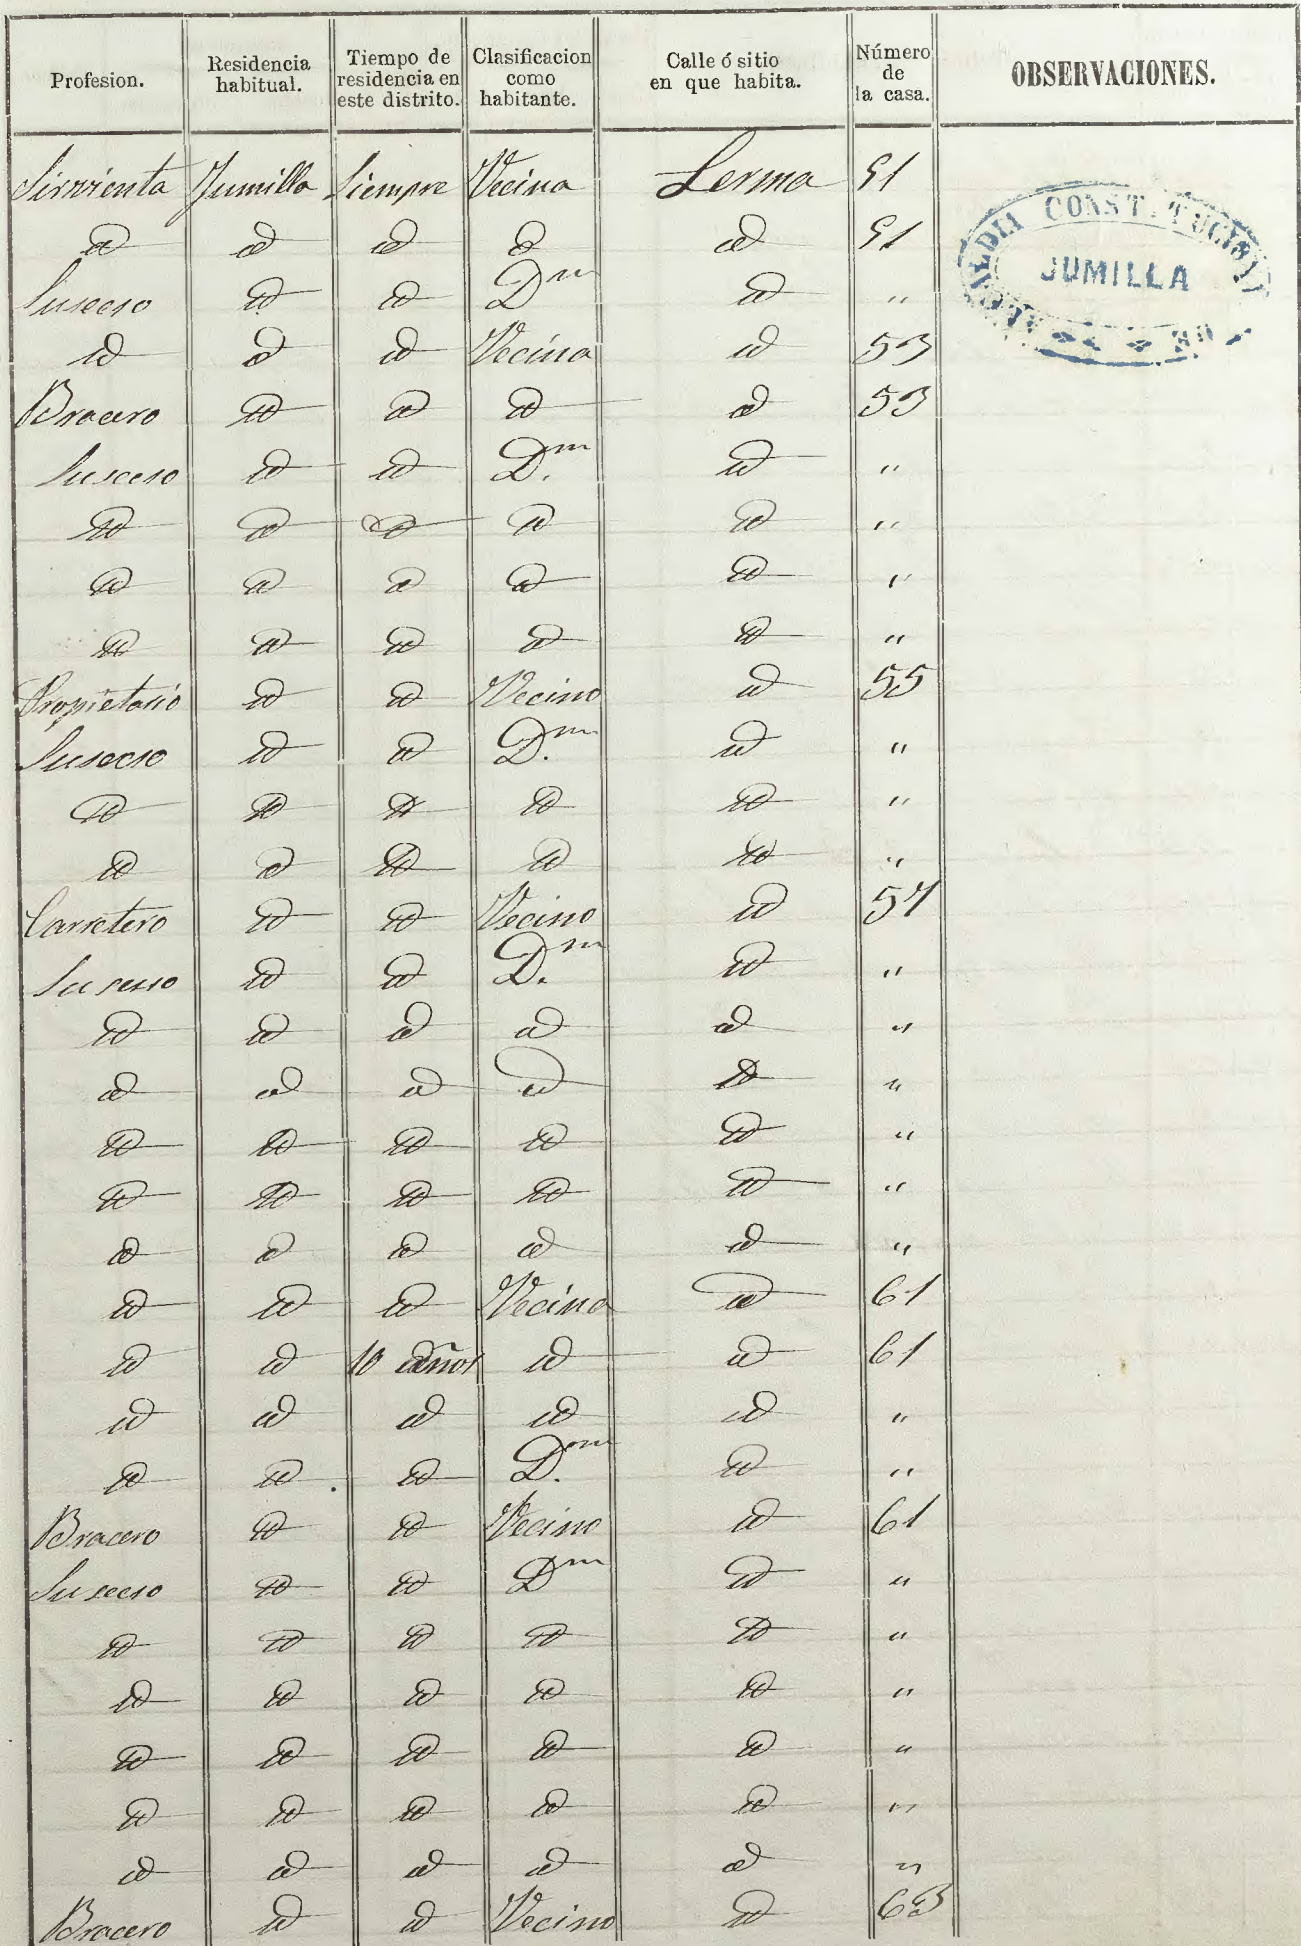 Profesion. Residencia habitual. Tiempo de residencia en este distrito. Clasificacion como habitante. Calle ó sitio en que habita. Número de la casa. OBSERVACIONES.
Sirvienta Jumilla Siempre Vecina Lerma 51
id id id id id 51
Su secso id id Dm id "
id id id Vecina id 53
Bracero id id id id 53
Su secso id id D.m id "
id id id id id "
id id id id id "
id id id id id "
Propietario id id Vecino id 55
Su secso id id D.m id "
id id id id id "
id id id id id "
Carretero id id Vecino id 57
Su secso id id D.m id "
id id id id id "
id id id id id "
id id id id id "
id id id id id "
id id id id id "
id id id Vecina id 61
id id 10 años id id 61
id id id id id "
id id id D.m id "
Bracero id id Vecino id 61
Su secso id id Dm id "
id id id id id "
id id id id id "
id id id id id "
id id id id id "
id id id id id "
Bracero id id Vecino id 63
ALCALDIA CONSTITUCIONAL
JUMILLA